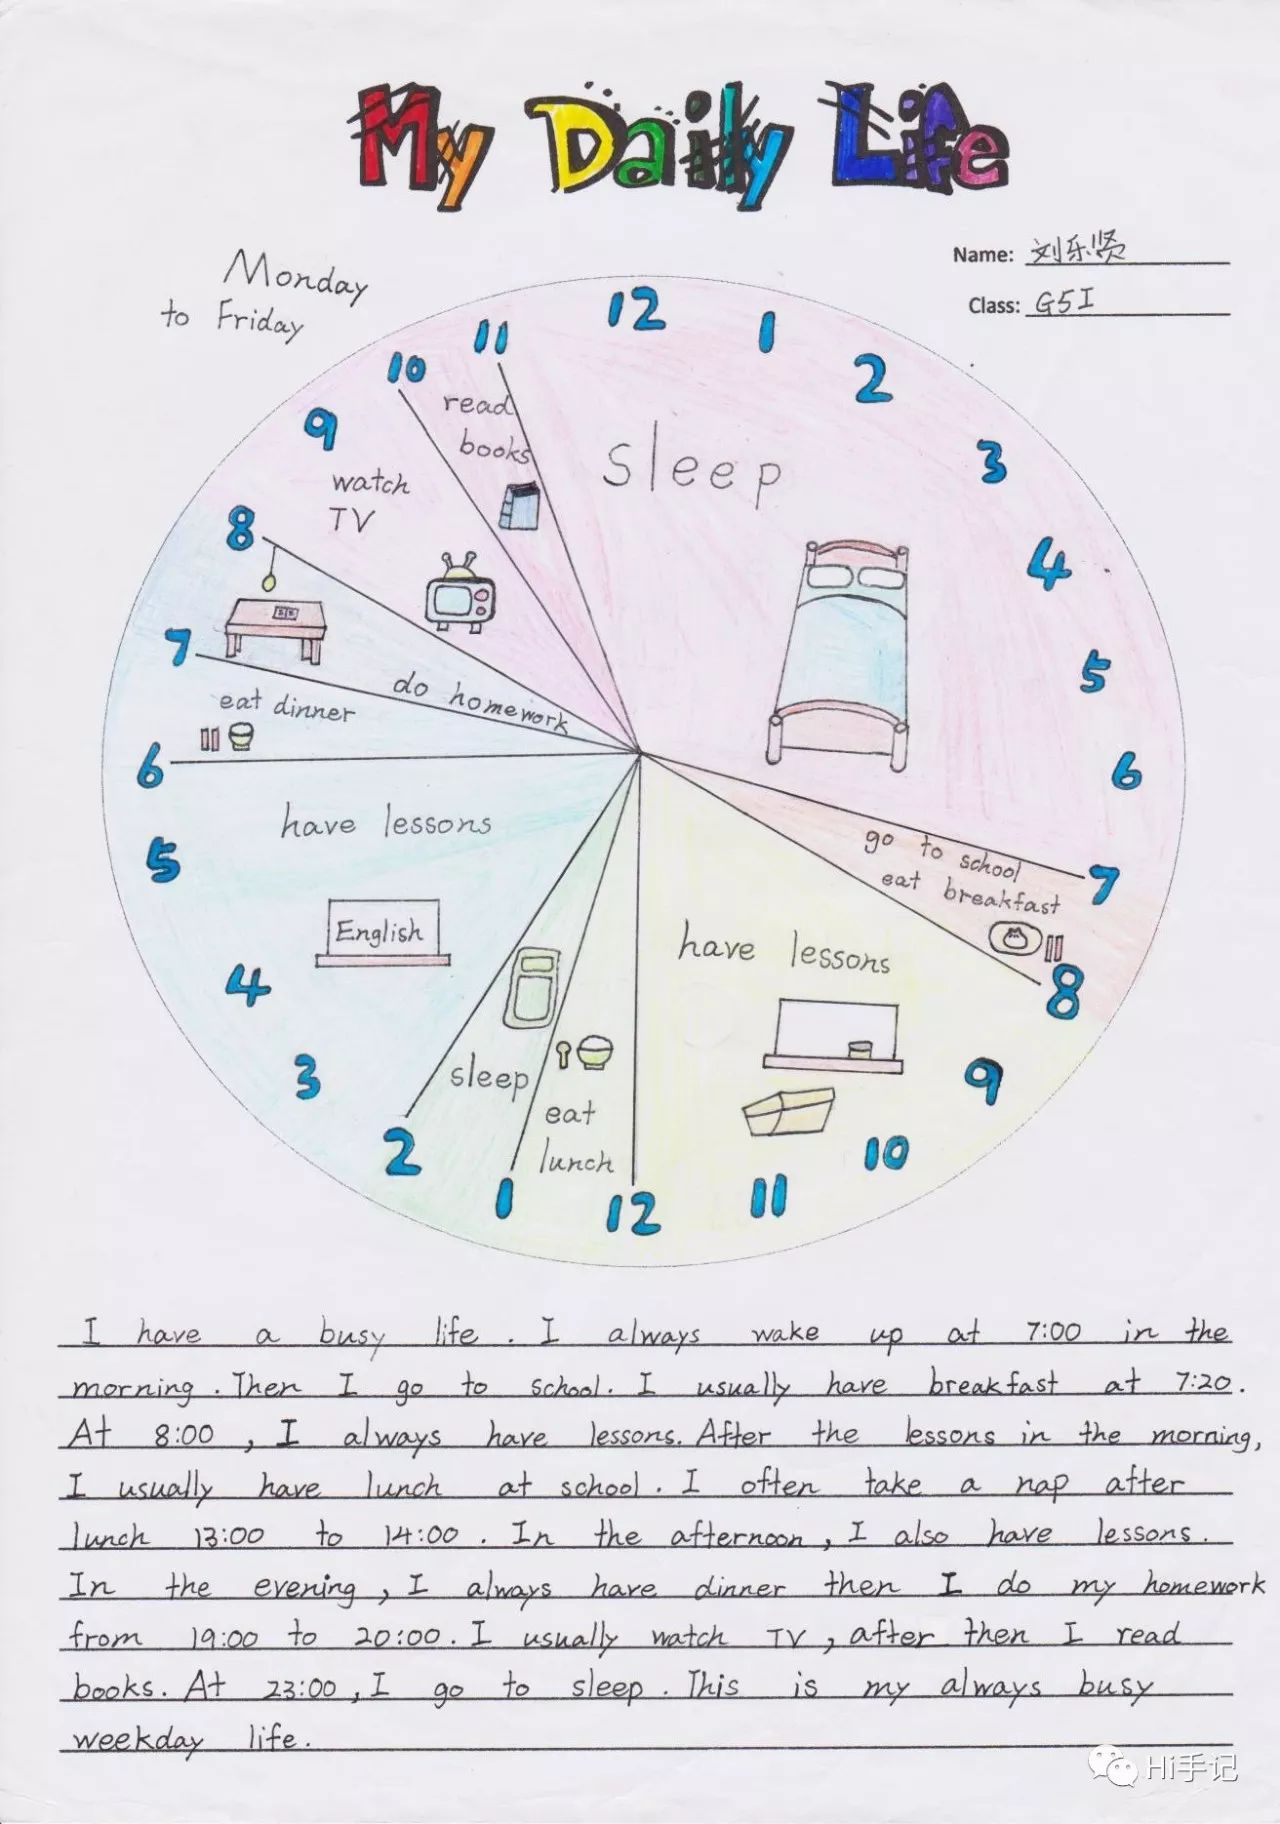 My Daily Life
Name: 刘乐贤
Class: G5I
Monday
to Friday
12
1
2
3
4
5
6
7
8
9
10
11
12
1
2
3
4
5
6
7
8
9
10
11
sleep
go to school
eat breakfast
have lessons
eat
lunch
sleep
have lessons
English
eat dinner
do homework
watch
TV
read
books
I have a busy life. I always wake up at 7:00 in the
morning. Then I go to school. I usually have breakfast at 7:20.
At 8:00, I always have lessons. After the lessons in the morning,
I usually have lunch at school. I often take a nap after
lunch 13:00 to 14:00. In the afternoon, I also have lessons.
In the evening, I always have dinner then I do my homework
from 19:00 to 20:00. I usually watch TV, after then I read
books. At 23:00, I go to sleep. This is my always busy
weekday life.
Hi手记